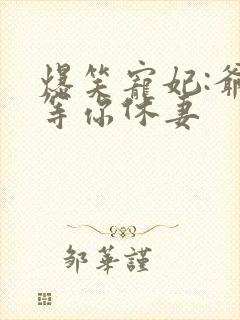 爆笑寵妃:爺
等你休妻
邹華謹